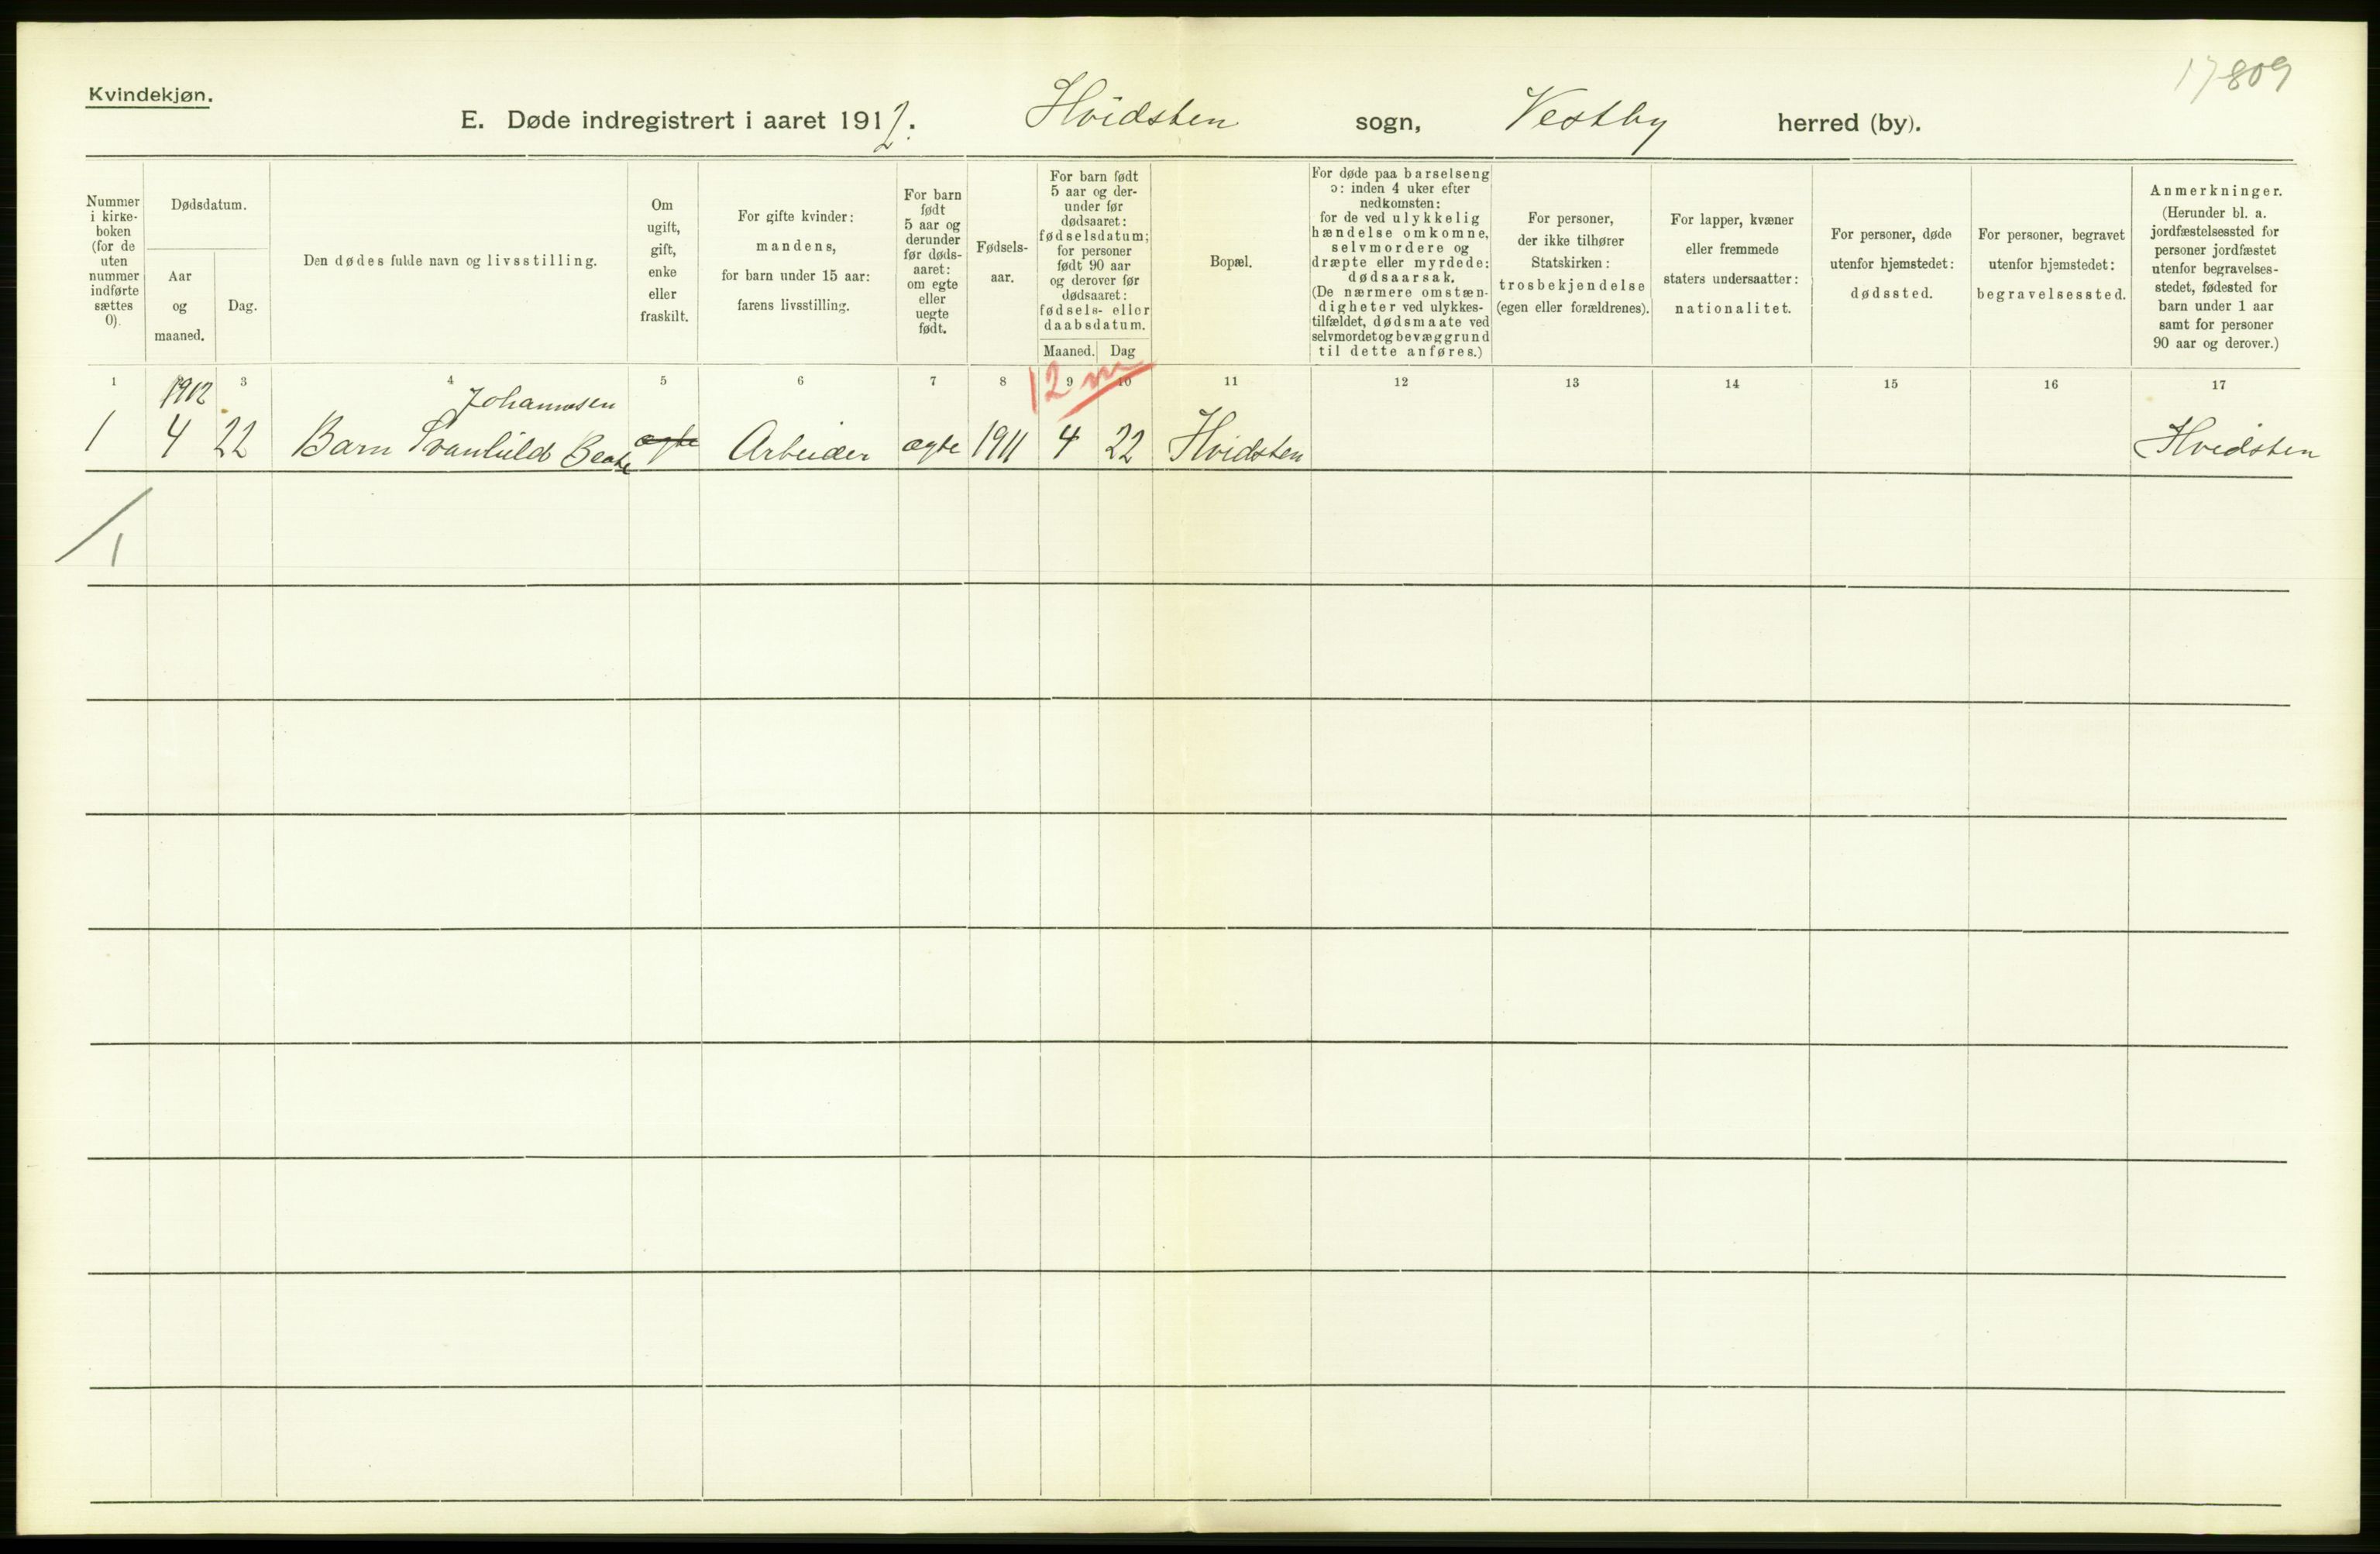 17809
Kvindekjøn.
E. Døde indregistrert i aaret 1912. Hvidsten sogn, Vestby herred (by).
Nummer
i kirke-
boken
(for de
uten
nummer
indførte
sættes
0).
Dødsdatum.
Aar
og
maaned.
Dag.
Den dødes fulde navn og livsstilling.
Om
ugift,
gift,
enke
eller
fraskilt.
For gifte kvinder:
mandens,
for barn under 15 aar:
farens livsstilling.
For barn
født
5 aar og
derunder
før døds-
aaret:
om egte
eller
uegte
født.
Fødsels-
aar.
For barn født
5 aar og der-
under før
dødsaaret:
fødselsdatum;
for personer
født 90 aar
og derover før
dødsaaret:
fødsels- eller
daabsdatum.
Maaned. Dag
Bopæl.
For døde paa barselseng
ɔ: inden 4 uker efter
nedkomsten:
for de ved ulykkelig
hændelse omkomne,
selvmordere og
dræpte eller myrdede:
dødsaarsak.
(De nærmere omstæn-
digheter ved ulykkes-
tilfældet, dødsmaate ved
selvmordet og bevæggrund
til dette anføres.)
For personer,
der ikke tilhører
Statskirken:
trosbekjendelse
(egen eller forældrenes).
For lapper, kvæner
eller fremmede
staters undersaatter:
nationalitet.
For personer, døde
utenfor hjemstedet:
dødssted.
For personer, begravet
utenfor hjemstedet:
begravelsessted.
Anmerkninger.
(Herunder bl. a.
jordfæstelsessted for
personer jordfæstet
utenfor begravelses-
stedet, fødested for
barn under 1 aar
samt for personer
90 aar og derover.)
1 3 4 5 6 7 8 9 10 11 12 13 14 15 16 17
12 m
1912 Johannesen
1 4 22 Barn Svanhild Beate ægte Arbeider ægte 1911 4 22 Hvidsten Hvidsten
1